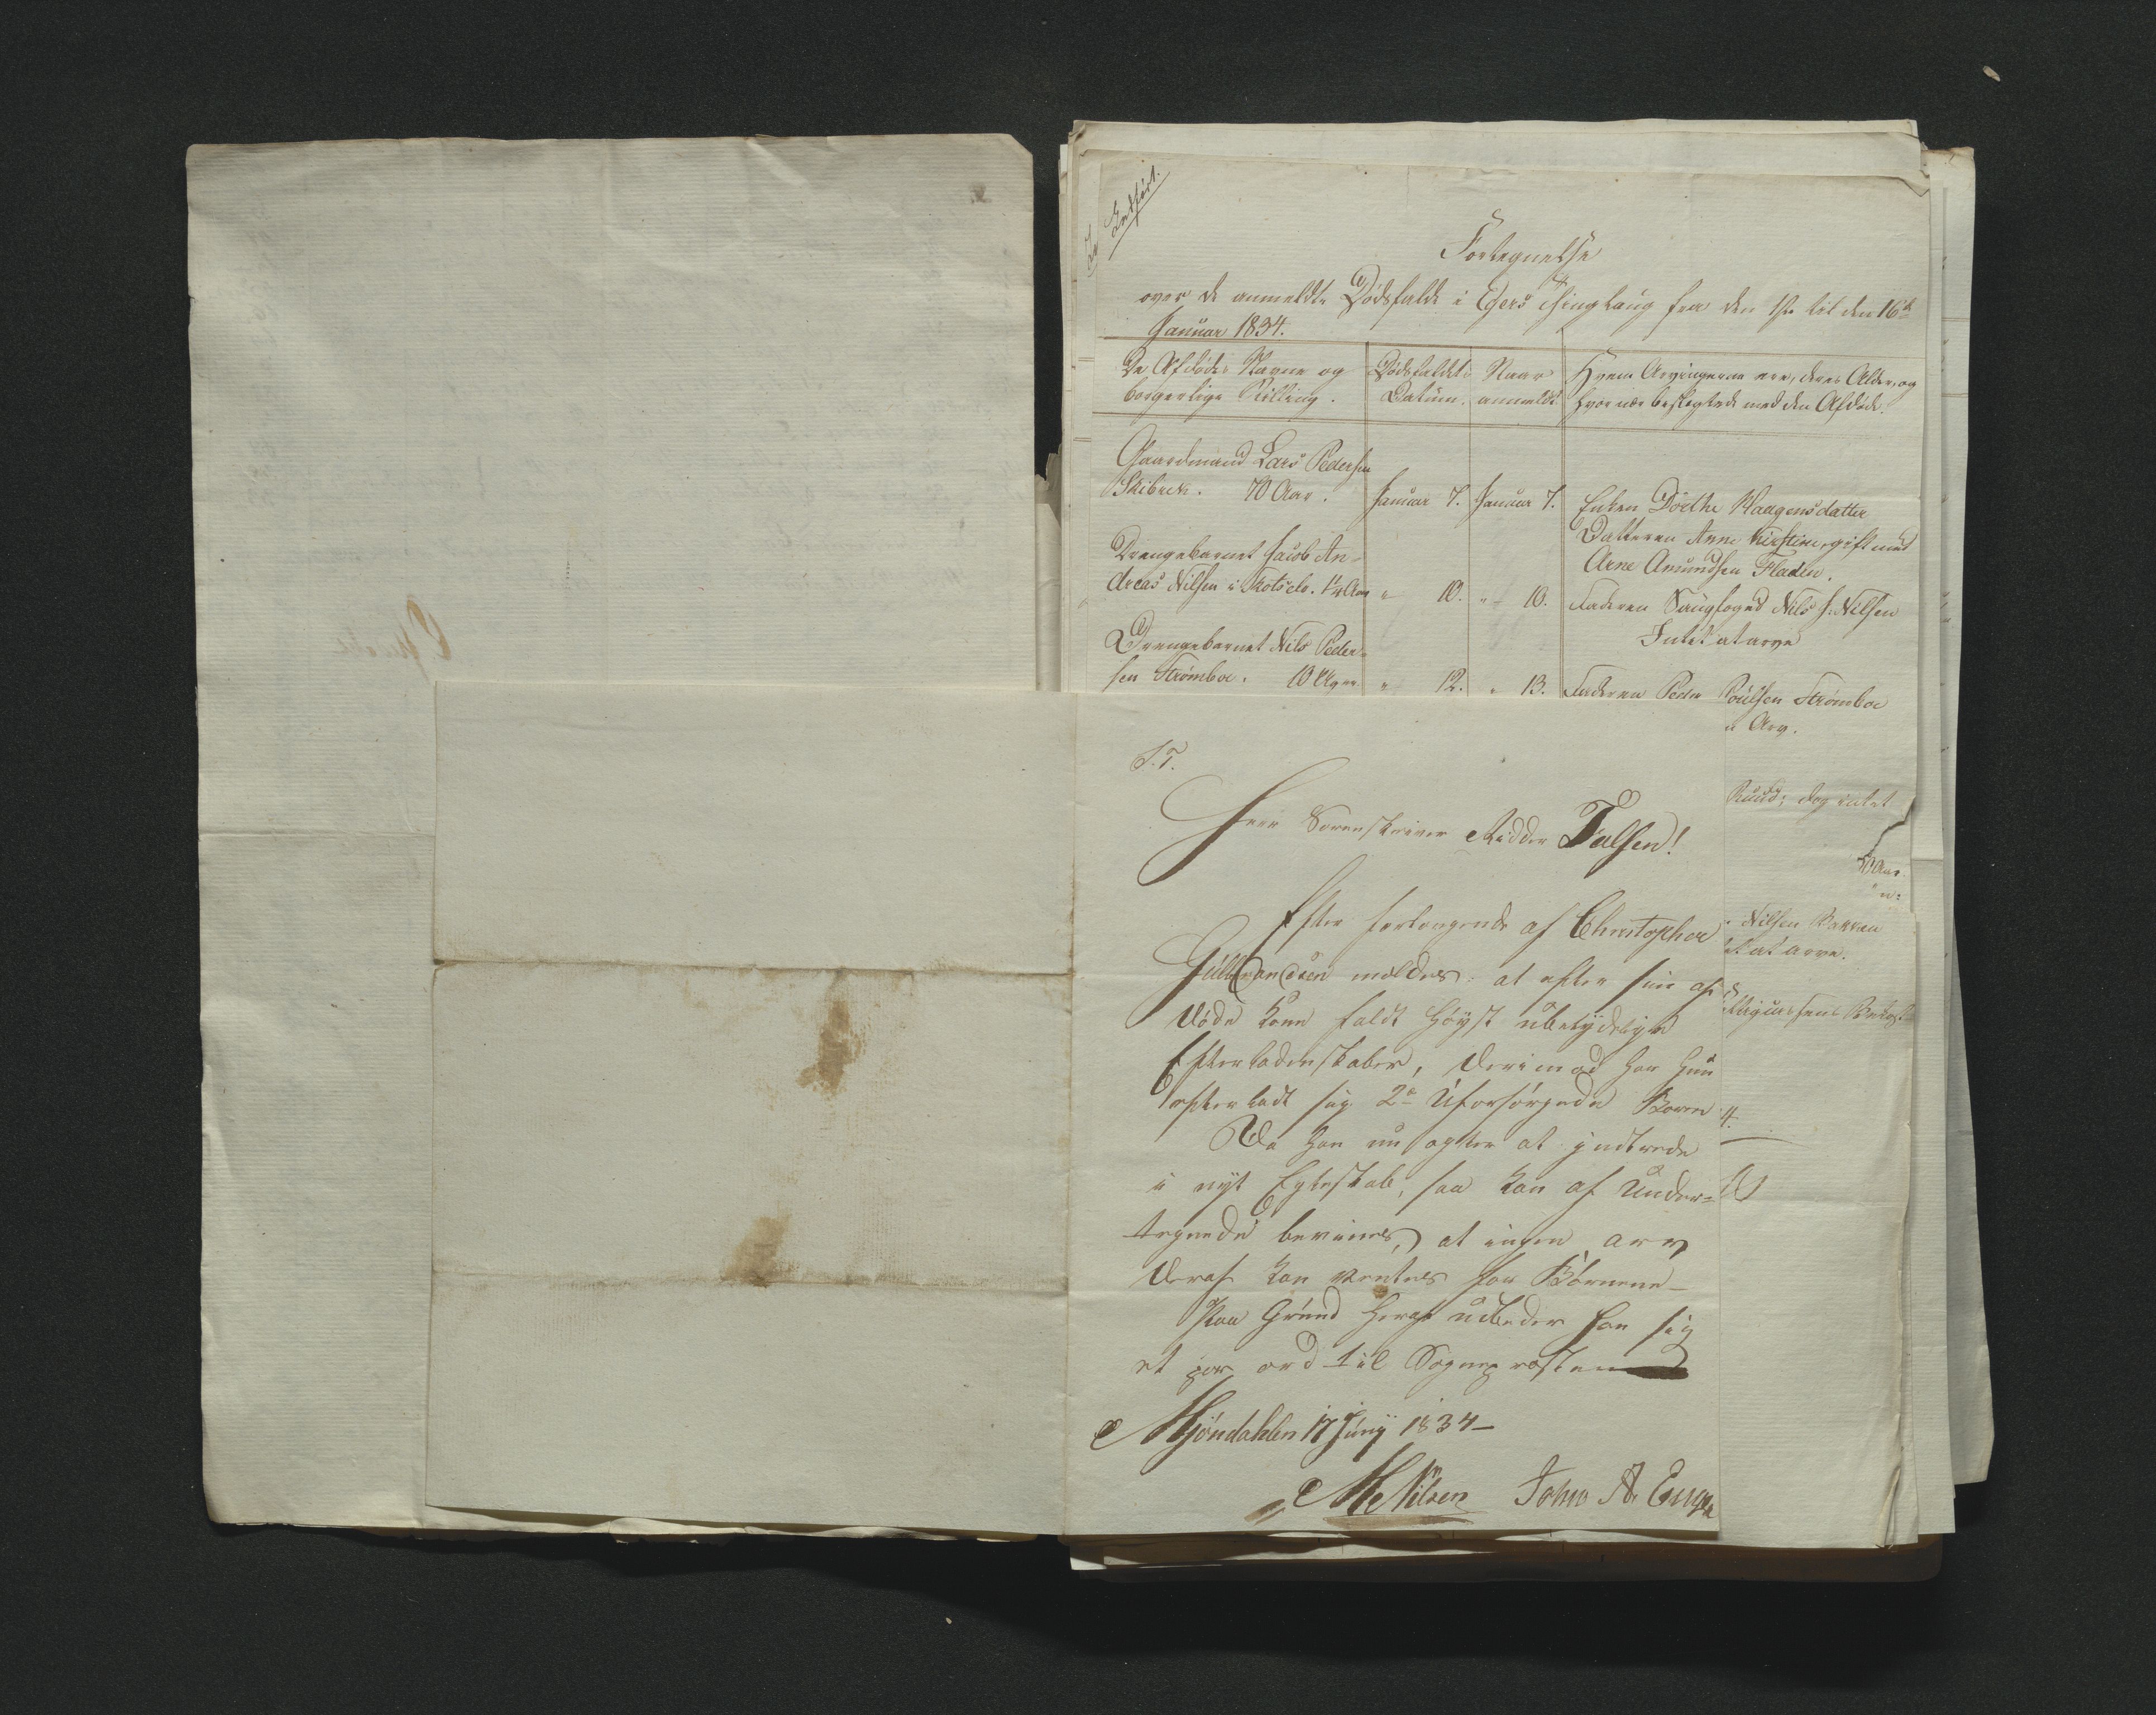 Indført.
Fortegnelse
over de anmeldte Dødsfalde i Egers Thinglaug fra den 1ste til den 16de
Januar 1834.
De Afdødes Navne og
borgerlige Stilling.
Dødsfaldets
Datum.
Naar
anmeldt.
Hvem Arvingerne ere, deres Alder, og
hvor nær beslegtede med den Afdøde.
Gaardmand Lars Pedersen
Skibrek. 70 Aar. Januar 7. Januar 7. Enken Dorthe Haagensdatter
Datteren Anne Kirstine, gift med
Arne Amundsen Fladen.
Drengebarnet Jacob An-
dreas Nilsen i Skotselv. 1 1/4 Aar " 10. " 10. Faderen Saugfoged Nils J: Nilsen
Intet at arve
Drengebarnet Nils Peder-
sen Strømboe. 10 Uger " 12. " 13. Faderen Peder Poulsen Strømboe
Arv.
Ruud; dog intet
Aar.
Nilsen
at arve.
S.T.
Herr Sorenskriver Ridder Falsen!
Efter forlangende af Christopher
Gulbrandsen meldes: at efter sin af-
døde Kone faldt høyst ubetydelige
Efterladenskaber, derimod har hun
efterladt sig 2de Uforsørgede Børn
Da han nu agter at indtrede
i nyt Egteskab, saa kan af Under-
tegnede bevines, at ingen arv
deraf kan ventes for Børnene—
Paa Grund heraf udbeder han sig
et par ord til Sogneprosten
Mjöndahlen 17 Juny 1834—
Nilsen John A. Enger